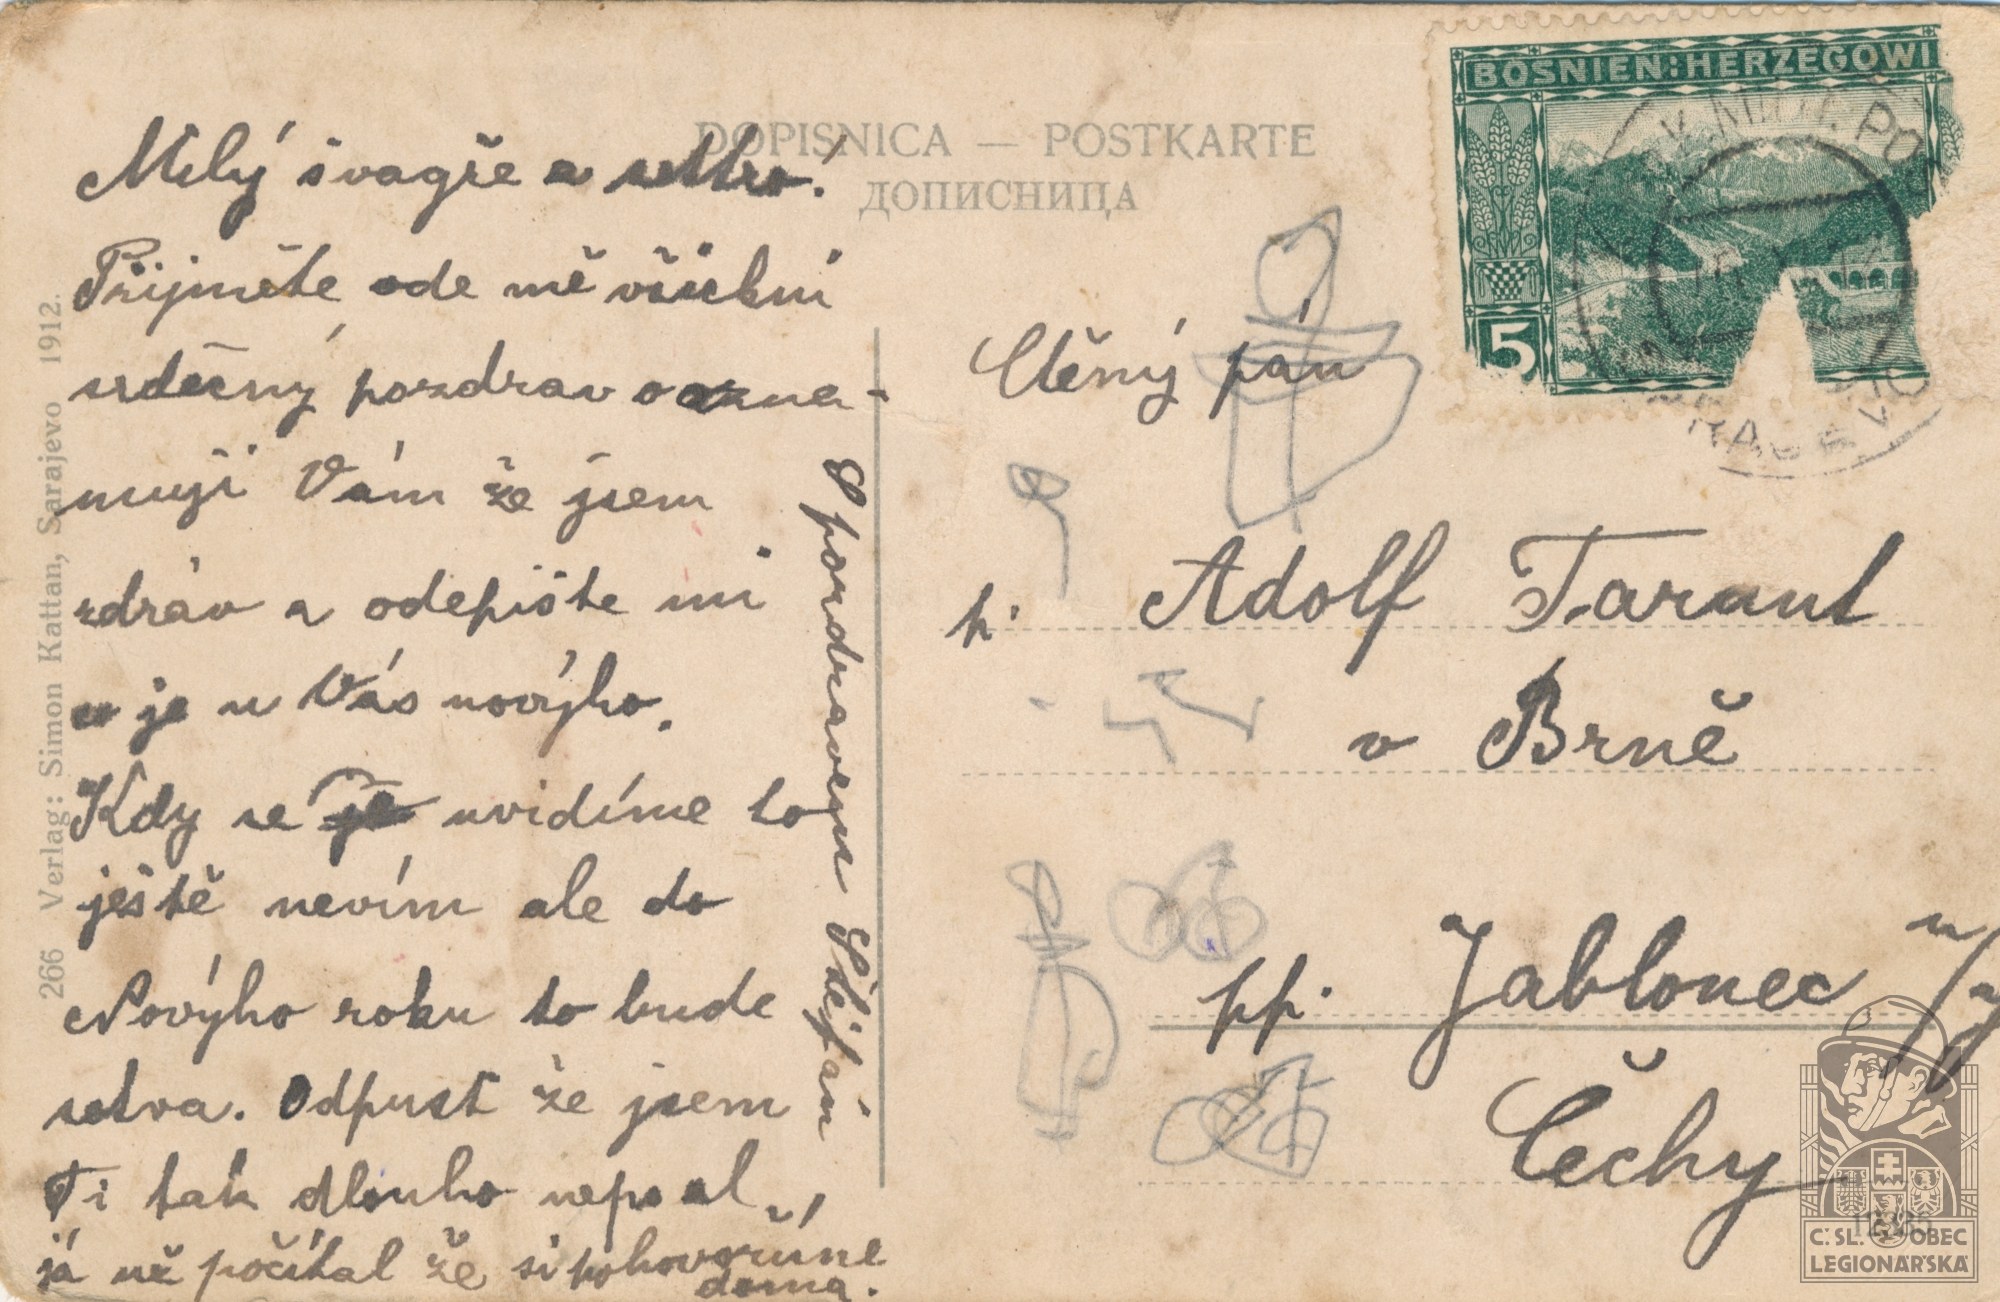 DOPISNICA — POSTKARTE
ДОПИСНИЦА
Milý švagře a sestro!
Přijměte ode mě všickni
srdečný pozdrav a ozna-
muji Vám že jsem
zdráv a odepište mi
co je u Vás novýho.
Kdy se je uvidíme to
ještě nevím ale do
Novýho roku to bude
sotva. Odpusť že jsem
Ti tak dlouho nepsal,
já už počítal že si pohovoříme
doma.
S pozdravem Štěpán
266 Verlag: Simon Kattan, Sarajevo 1912.
BOSNIEN:HERZEGOWI
5
K. u. K. MILIT. PO
SARAJEVO
Ctěný pán
p. Adolf Taraut
v Brně
pp. Jablonec n/J
Čechy
Č. SL. OBEC
LEGIONÁŘSKÁ